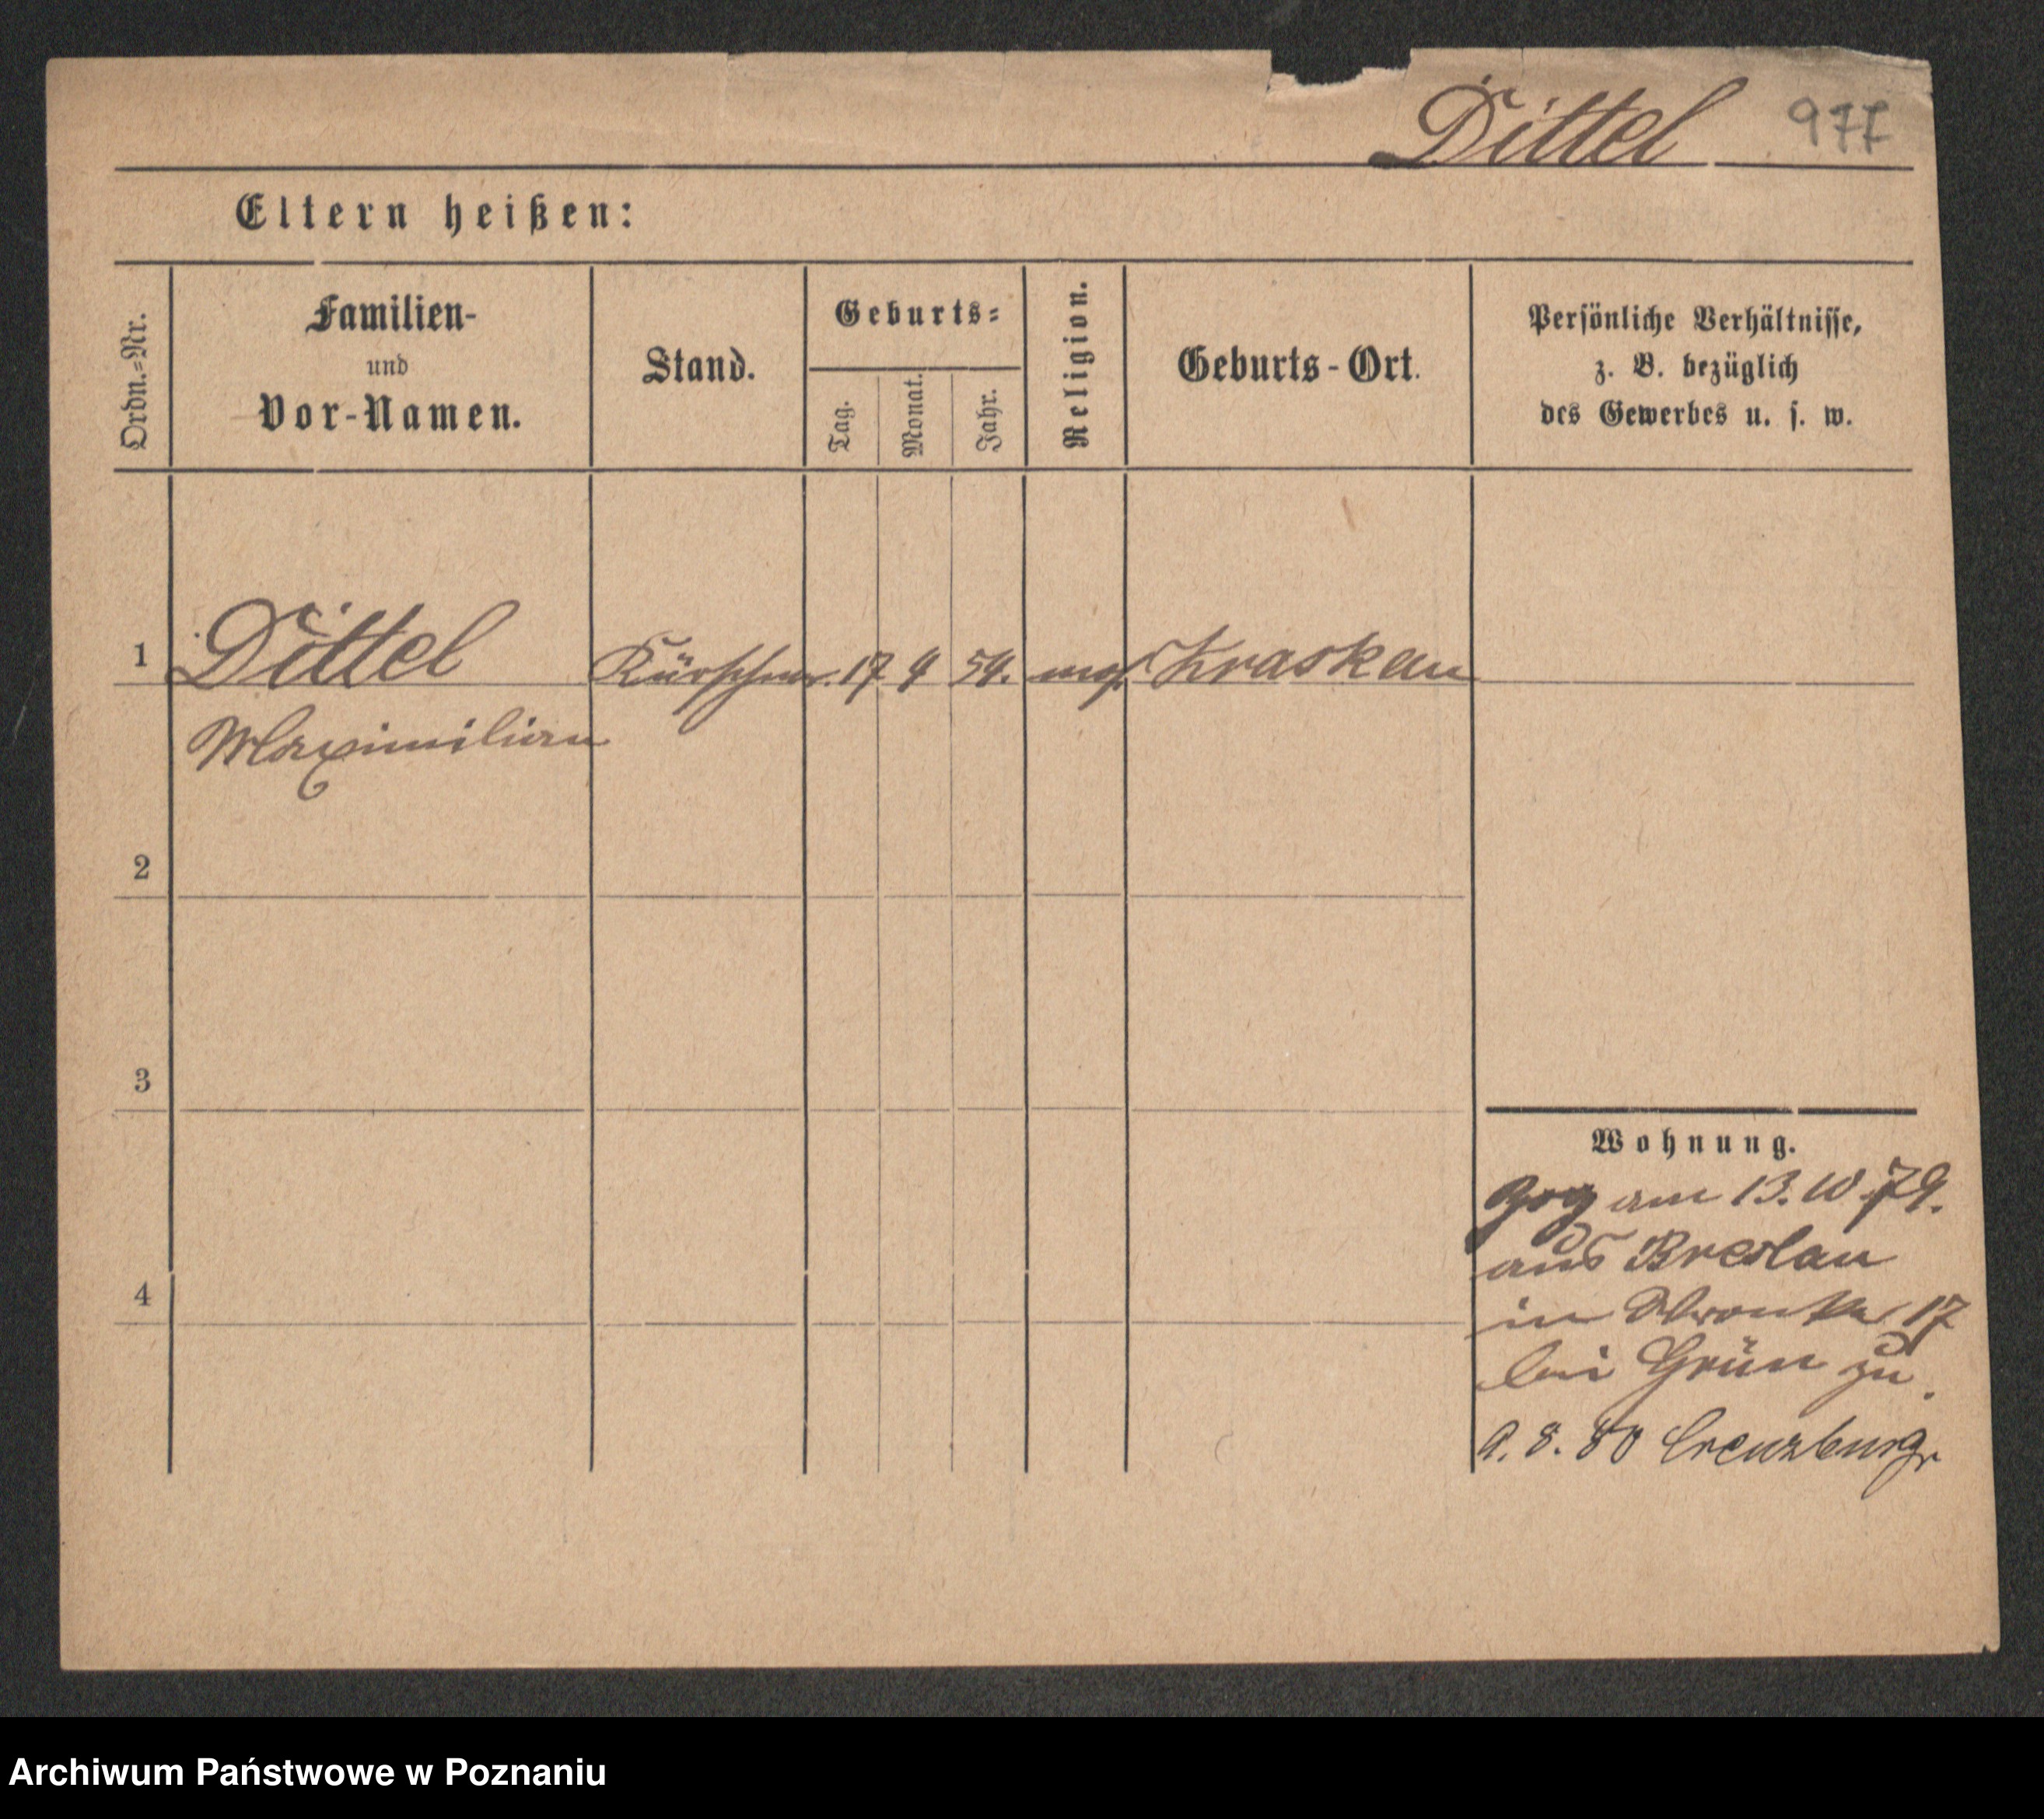 Dittel 977
Eltern heißen:
Ordn.-Nr.
Familien-
und
Vor-Namen.
Stand.
Geburts-
Tag.
Monat.
Jahr.
Religion.
Geburts-Ort.
Persönliche Verhältnisse,
z. B. bezüglich
des Gewerbes u. s. w.
1 Dittel Kürschner. 17 4 54. Kraskau
Maximilian
2
3
4
Wohnung.
Zog am 13.10.79.
aus Breslau
in Wronker 17
bei Grün zu.
9.8.80 Creuzburg
Archiwum Państwowe w Poznaniu